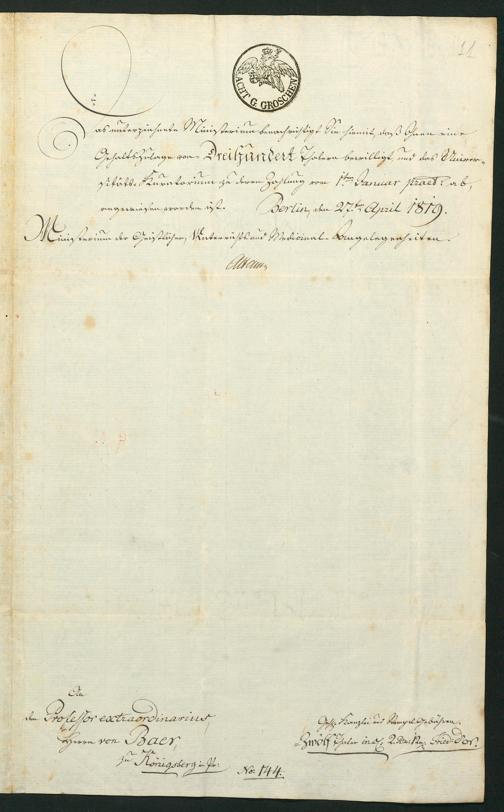 11
ACHT G. GROSCHEN
Das unterzeichnete Ministerium benachrichtigt Sie hiermit, daß Ihnen eine
Gehaltszulage von Dreihundert Thalern bewilligt, und das Univer-
sitäts-Kuratorium zu deren Zahlung vom 1ten Januar praet: ab,
angewiesen worden ist. Berlin, den 27ten April 1819.
Ministerium der Geistlichen, Unterrichts und Medicinal-Angelegenheiten.
Altenstein
An
den Professor extraordinarius
Herrn von Baer,
zu Königsberg in Pr:
No. 144.
Kanzlei und Stempel Gebühren
Zwölf Thaler